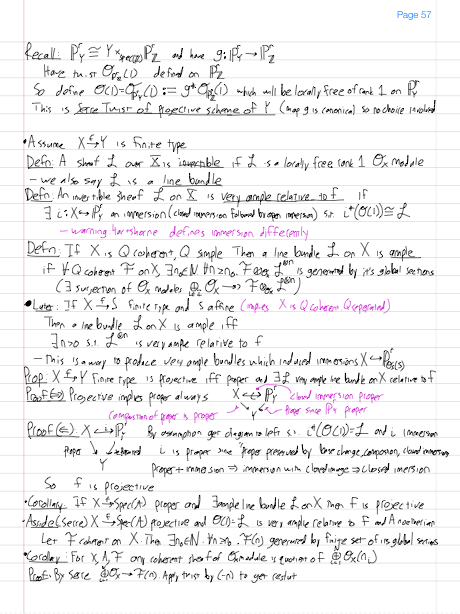 Page 57
Recall: ℙ^r_Y ≅ Y ×_{Spec(ℤ)} ℙ^r_ℤ and have g: ℙ^r_Y → ℙ^r_ℤ
Have twist O_{ℙ^r_ℤ}(1) defined on ℙ^r_ℤ
So define O(1) = O_{ℙ^r_Y}(1) := g* O_{ℙ^r_ℤ}(1) which will be locally free of rank 1 on ℙ^r_Y
This is Serre Twist of projective scheme of Y (map g is canonical so no choice involved)
• Assume X →^f Y is finite type
Defn: A sheaf L over X is invertible if L is a locally free rank 1 O_X module
– we also say L is a line bundle
Defn: An invertible sheaf L on X is very ample relative to f if
∃ i: X ↪ ℙ^r_Y an immersion (closed immersion followed by open immersion) s.t. i*(O(1)) ≅ L
– warning Hartshorne defines immersion differently
Defn: If X is Qcoherent, Q simple Then a line bundle L on X is ample
if ∀ Qcoherent F on X, ∃n₀∈ℕ ∀n≥n₀, F⊗L^{⊗n} is generated by it's global sections
(∃ surjection of O_X modules ⊕ O_X → F⊗L^{⊗n})
• Later: If X →^f S finite type and S affine (implies X is Qcoherent Qseparated)
Then a line bundle L on X is ample iff
∃n>0 s.t. L^{⊗n} is very ample relative to f
– This is a way to produce very ample bundles which induced immersions X ↪ ℙ^r
Prop: X →^f Y finite type is projective iff proper and ∃L very ample line bundle on X relative to f
Proof (⇒) Projective implies proper always X ↪ ℙ^r_Y closed immersion proper
Composition of proper is proper Y proper since ℙ^r_Y proper
Proof (⇐) X ↪ ℙ^r_Y By assumption get diagram to left s.t. i*(O(1)) = L and i immersion
proper Y i is proper since proper preserved by base change, composition, closed immersion
proper + immersion ⇒ immersion with closed image ⇒ closed immersion
So f is projective
• Corollary: If X →^f Spec(A) proper and ∃ample line bundle L on X then f is projective
• Aside (Serre) X →^f Spec(A) projective and O(1) = L is very ample relative to f and A noetherian
Let F coherent on X. Then ∃n₀∈ℕ ∀n≥n₀, F(n) generated by finite set of its global sections
• Corollary: For X, A, F any coherent sheaf of O_X module is quotient of ⊕ O_X(n_i)
Proof: By Serre ⊕O_X → F(n). Apply twist by (-n) to get result